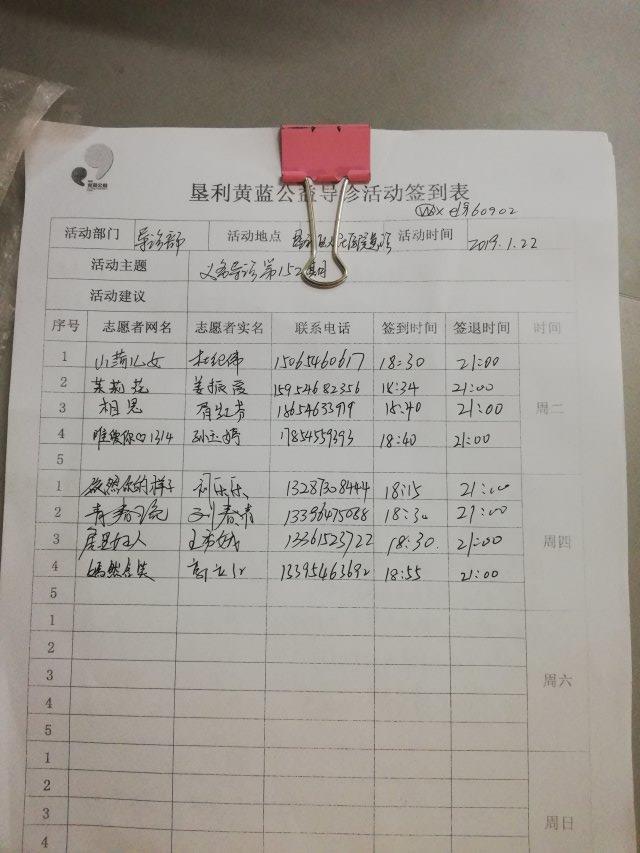 垦利黄蓝公益导诊活动签到表
60902
活动部门 导诊部 活动地点 活动时间 2019.1.22
活动主题 义务导诊第152期
活动建议
序号 志愿者网名 志愿者实名 联系电话 签到时间 签退时间 时间
1 山菊儿女 15065460617 18:30 21:00
2 茉莉花 姜振霞 15954682356 18:34 21:00
3 相思 18654633979 18:40 21:00 周二
4 唯爱你♡1314 孙玉婷 17854559393 18:40 21:00
5
1 乐乐 13287308444 18:15 21:00
2 刘春清 13396475088 18:30 21:00
3 13361523722 18:30 21:00 周四
4 嫣然含笑 13395463692 18:55 21:00
5
1
2
3 周六
4
5
1
2
3 周日
4